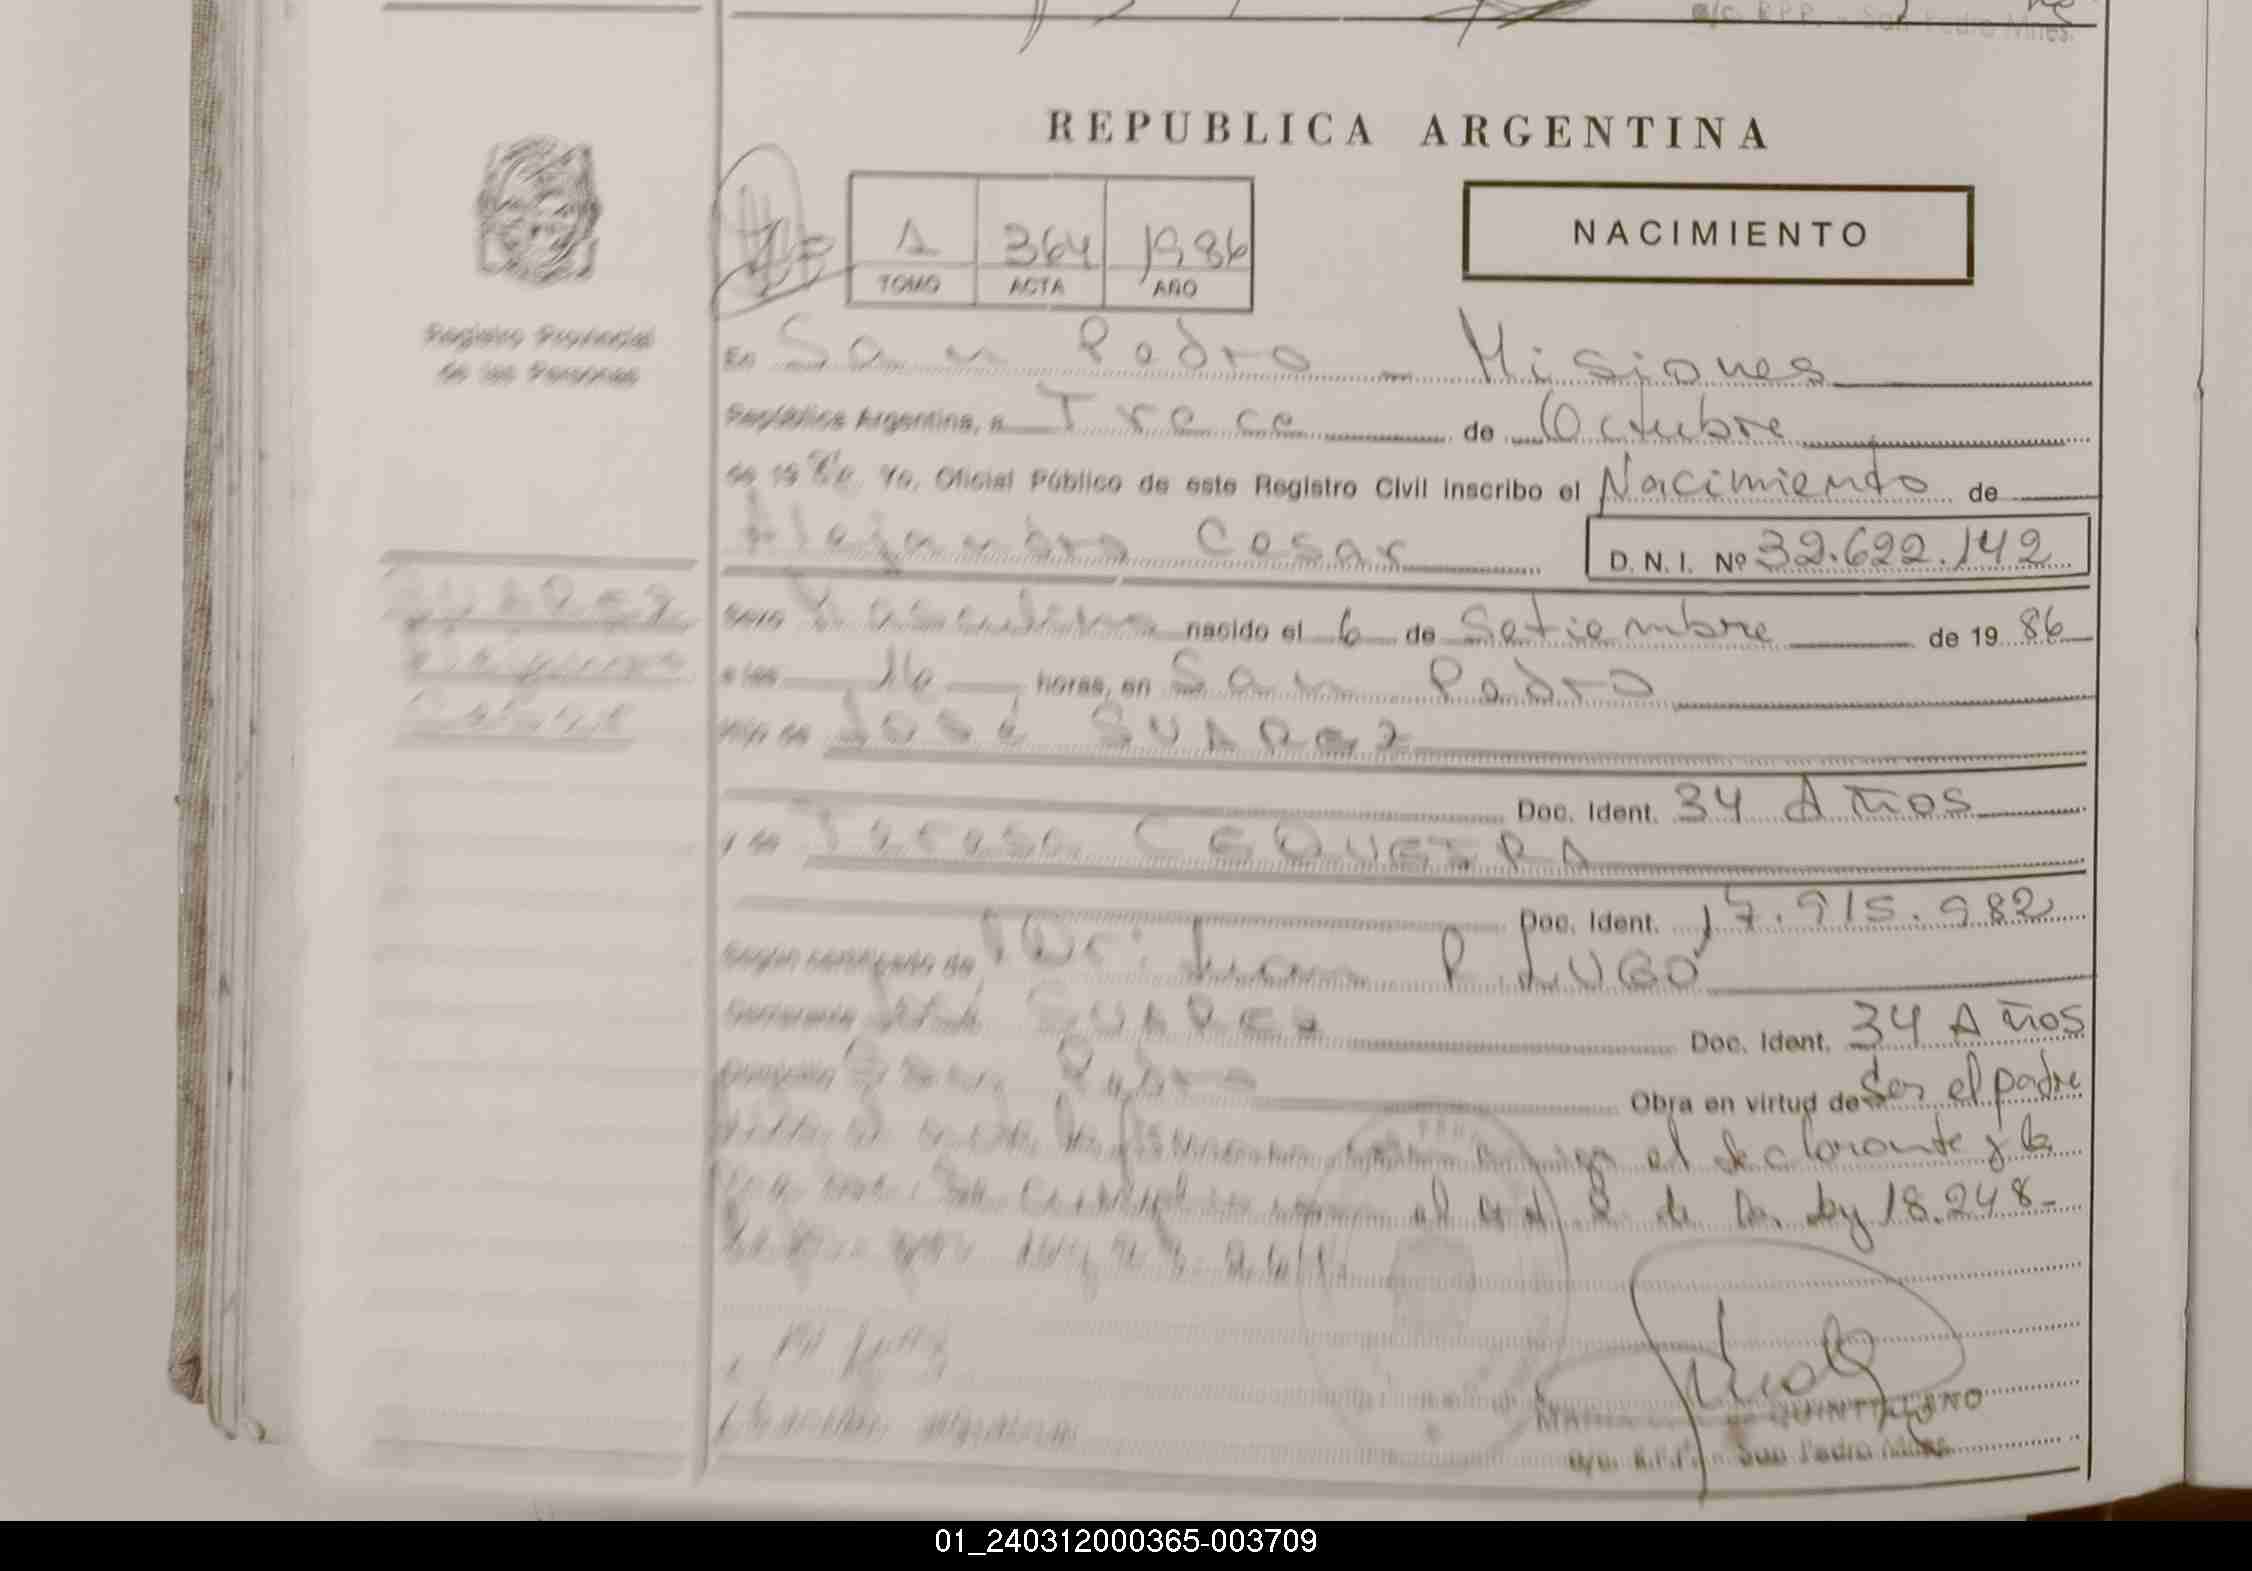 REPUBLICA ARGENTINA
NACIMIENTO
364 1986
TOMO ACTA AÑO
Registro Provincial
de las Personas
En San Pedro - Misiones
República Argentina, a Trece de Octubre
de 19 86. Yo, Oficial Público de este Registro Civil inscribo el Nacimiento de
Alejandro Cesar D. N. I. Nº 32.622.142
SUAREZ
Alejandro
Cesar
Sexo Masculino nacido el 6 de Setiembre de 19 86
a las 16 horas, en San Pedro
Hijo de José SUAREZ
Doc. Ident. 34 Años
y de Teresa CEQUEIRA
Doc. Ident. 17.915.982
Según certificado de Dr: Juan P. LUGO
José SUAREZ Doc. Ident. 34 Años
Domicilio San Pedro Obra en virtud de Ser el padre
el declarante y la
el de la Ley 18.248-
QUINTTALANO
R.P.P. - San Pedro Mnes.
01_240312000365-003709